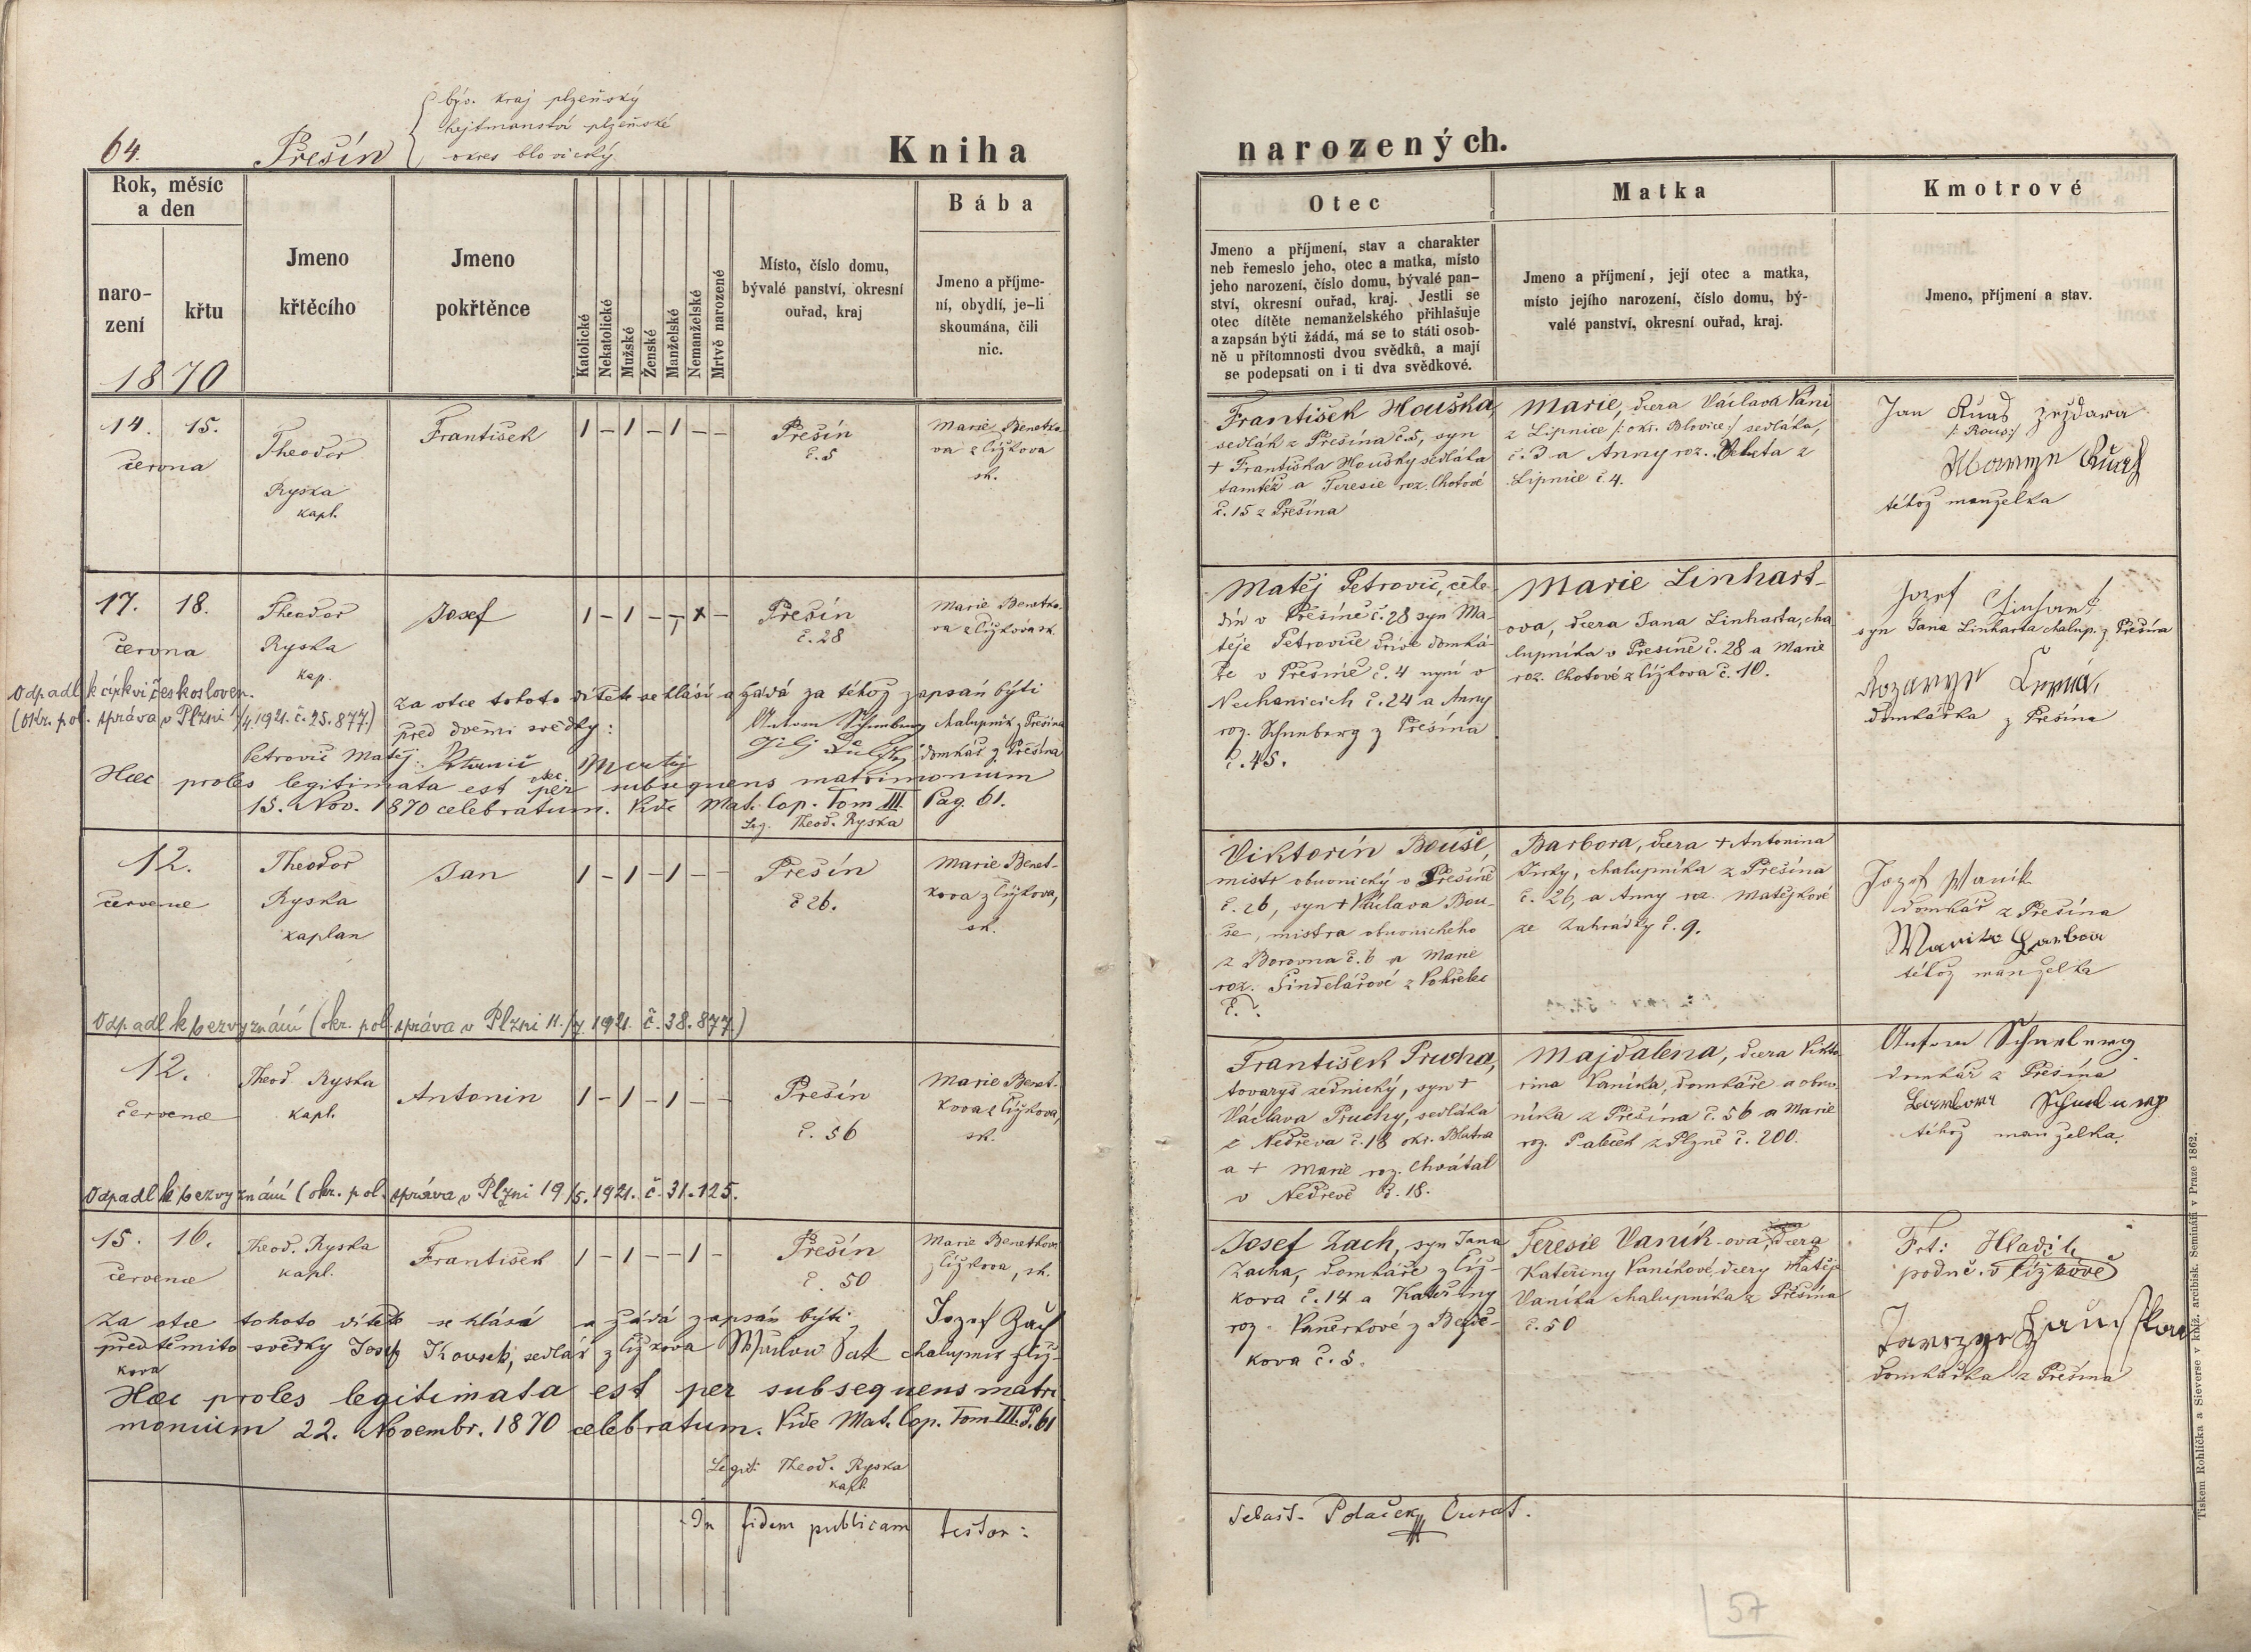 býv. kraj plzeňský
hejtmanství plzeňské
64. Přešín okres blovický
Kniha narozených.
Rok, měsíc a den
narození
křtu
Jmeno křtěcího
Jmeno pokřtěnce
Katolické
Nekatolické
Mužské
Ženské
Manželské
Nemanželské
Mrtvě narozené
Místo, číslo domu,
bývalé panství, okresní
ouřad, kraj
Bába
Jmeno a příjme-
ní, obydlí, je-li
skoumána, čili
nic.
Otec
Jmeno a příjmení, stav a charakter
neb řemeslo jeho, otec a matka, místo
jeho narození, číslo domu, bývalé pan-
ství, okresní ouřad, kraj. Jestli se
otec dítěte nemanželského přihlašuje
a zapsán býti žádá, má se to státi osob-
ně u přítomnosti dvou svědků, a mají
se podepsati on i ti dva svědkové.
Matka
Jmeno a příjmení, její otec a matka,
místo jejího narození, číslo domu, bý-
valé panství, okresní ouřad, kraj.
Kmotrové
Jmeno, příjmení a stav.
1870
14. 15.
června
Theodor
Ryska
kapl.
František
1 – 1 – 1 – –
Přešín
č. 5
Marie Benetko-
va z Čížkova
sk.
František Houška,
sedlák z Přešína č. 5, syn
+ Františka Housky sedláka
tamtéž a Teresie roz. Chotové
č. 15 z Přešína
Marie, dcera Václava Váni
z Lipnice /: okr. Blovice:/ sedláka,
č. 3 a Anny roz. z
Lipnice č. 4.
Jan
/: Rous:/
téhož manželka
17. 18.
června
Theodor
Ryska
kap.
Josef
1 – 1 – – x –
Přešín
č. 28
Marie Benetko-
va z Čížkova sk.
Matěj Petrovic, čele-
dín v Přešíně č. 28 syn Ma-
těje Petrovice dříve domká-
ře v Přešíně č. 4 nyní v
Nechanicích č. 24 a Anny
roz. Schneberg z Přešína
č. 45.
Marie Linhart-
ova, dcera Jana Linharta, cha
lupníka v Přešíně č. 28 a Marie
roz. Chotové z Čížkova č. 10.
Jozef Linhart
syn Jana Linharta chalup. z Přešína
domkářka z Přešína
Odpadl k církvi českosloven.
(Okr. pol. správa v Plzni /4 1921. č. 25.877.)
Za otce tohoto dítěte se hlásí a žádá za téhož zapsán býti
před dvěmi svědky:
chalupník z Přešína
domkář z Přešína
Petrovič Matěj
otec
Haec proles legitimata est per subsequens matrimonium
15. Nov. 1870 celebratum. Vide Mat. Cop. Tom III. Pag. 61.
Leg. Theod. Ryska
12.
července
Theodor
Ryska
kaplan
Jan
1 – 1 – 1 – –
Přešín
č 26.
Marie Benet-
kova z Čížkova,
sk.
Viktorín Bouše,
mistr obuvnický v Přešíně
č. 26, syn + Václava Bou-
še, mistra obuvnického
z Borovna č. 6 a Marie
roz. Šindelářové z
č. ?
Barbora, dcera + Antonina
chalupníka z Přešína
č. 26, a Anny roz. Matějkové
ze Zahrádky č. 9.
Jozef Waník
domkář z Přešína
téhož manželka
Odpadl k bezvyznání (okr. pol. správa v Plzni 11./7. 1921. č. 38.877.)
12.
července
Theod. Ryska
kapl.
Antonin
1 – 1 – 1 – –
Přešín
č. 56
Marie Benet-
kova z Čížkova,
sk.
František Prucha,
tovaryš zednický, syn +
Václava Pruchy, sedláka
z Nedřeva č. 18 okr. Blatna
a + Marie roz. Chvátal
v Nedřevě č. 18.
Majdalena, dcera Vikto-
rina Vaníka, domkáře a obuv-
níka z Přešína č. 56 a Marie
roz. Paleček z Plzně č. 200.
domkář z Přešína
téhož manželka.
Odpadl k bezvyznání (okr. pol. správa v Plzni 19/5. 1921. č. 31.125.
15. 16.
července
Theod. Ryska
kapl.
František
1 – 1 – – 1 –
Přešín
č. 50
Marie Benetkova
z Čížkova, sk.
Josef Zach, syn Jana
Zacha, domkáře z Číž-
kova č. 14 a Kateřiny
roz. z
kova č. 5.
Teresie Vaník-ová, dcera
Kateřiny Vaníkové, dcery Matěje
Vaníka chalupníka z Přešína
č. 50
Frt: Hladík
podúč. v Čížkově
domkářka z Přešína
Za otce tohoto dítěte se hlásí a žádá zapsán býti Jozef Zach
před těmito svědky Josef Kousek, sedlák z Čížkova chalupník z Číž-
kova
Haec proles legitimata est per subsequens matri-
monium 22. Novembr. 1870 celebratum. Vide Mat. Cop. Tom III. P. 61
Legit. Theod. Ryska
kapl.
In fidem publicam testor:
Sebast. Polaček, Curat.
Tiskem Rohlíčka a Sieverse v kníž. arcibisk. Semináři v Praze 1862.
57